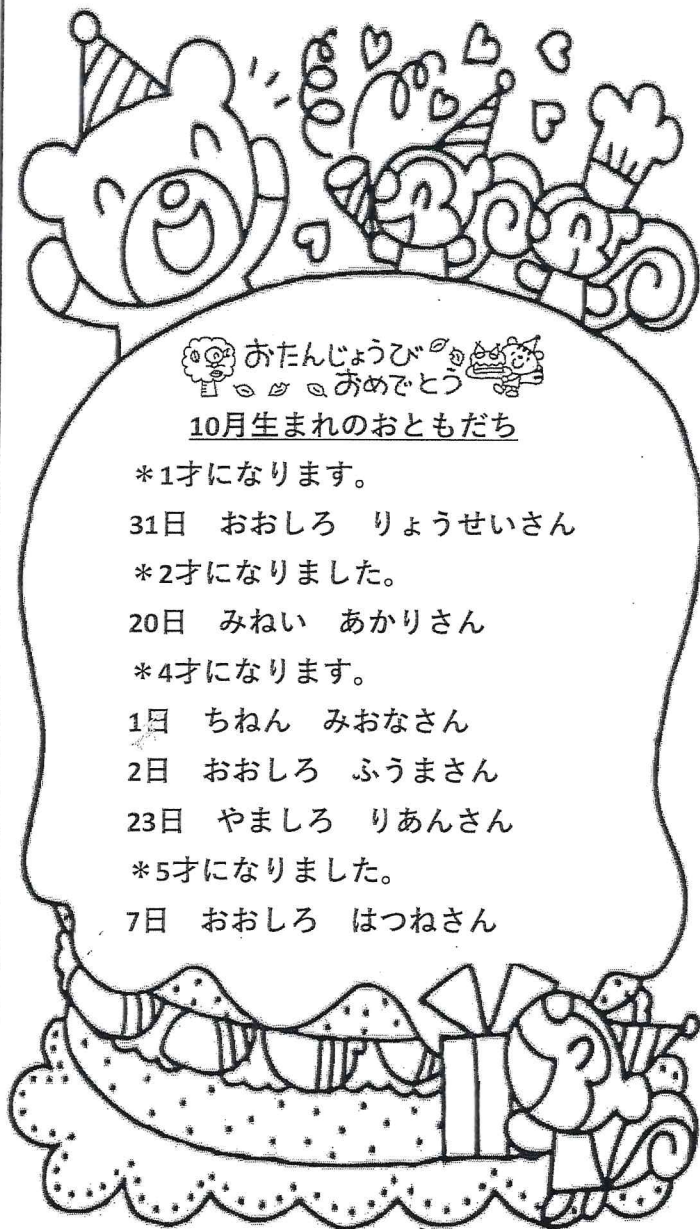 おたんじょうび
おめでとう
10月生まれのおともだち
＊1才になります。
31日　おおしろ　りょうせいさん
＊2才になりました。
20日　みねい　あかりさん
＊4才になります。
1日　ちねん　みおなさん
2日　おおしろ　ふうまさん
23日　やましろ　りあんさん
＊5才になりました。
7日　おおしろ　はつねさん